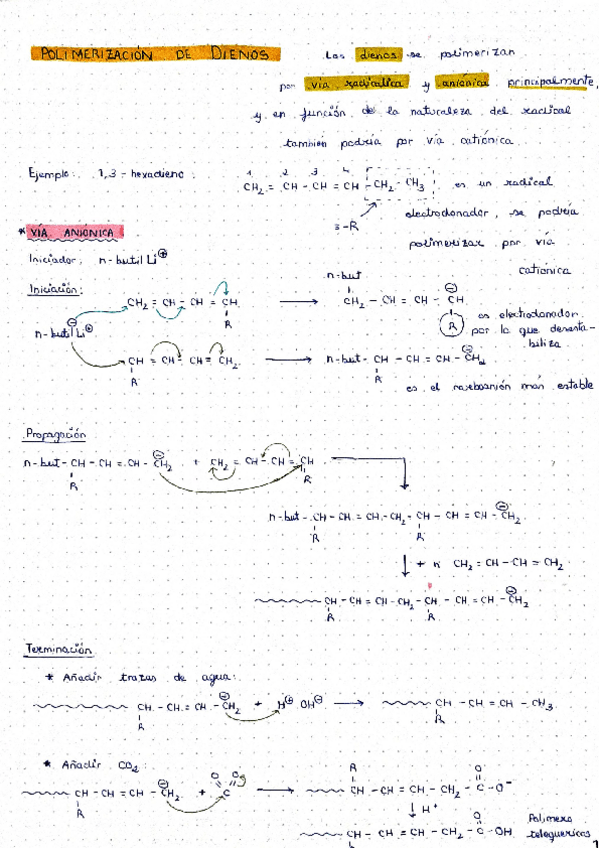 POLIMERIZACIÓN DE DIENOS
Los dienos se polimerizan
por vía radicálica y aniónica principalmente,
y en función de la naturaleza del radical
también podría por vía catiónica.
Ejemplo: 1,3-hexadieno:
1 2 3 4
CH2 = CH - CH = CH - CH2 - CH3 es un radical
electrodonador, se podría
3-R
polimerizar por vía
catiónica
* VÍA ANIÓNICA
Iniciador: n-butil Li⊕
Iniciación:
CH2 = CH - CH = CH
R
n-butil Li⊕
⊖
n-but
CH2 - CH = CH - CH
⊖
R
es electrodonador,
por lo que desesta-
biliza
CH = CH - CH = CH2
R
n-but - CH - CH = CH - CH2
⊖
R
es el carbanión más estable
Propagación
n-but - CH - CH = CH - CH2 + CH2 = CH - CH = CH
⊖
R R
n-but - CH - CH = CH - CH2 - CH - CH = CH - CH2
⊖
R R
+ n CH2 = CH - CH = CH2
CH - CH = CH - CH2 - CH - CH = CH - CH2
⊖
R R
Terminación
* Añadir trazas de agua:
CH - CH = CH - CH2 + H⊕ OH⊖ CH - CH = CH - CH3
⊖
R R
* Añadir CO2:
CH - CH = CH - CH2 + O C O
⊖
R
R O
CH - CH = CH - CH2 - C - O-
H+
O
CH - CH = CH - CH2 - C - OH
Polímero